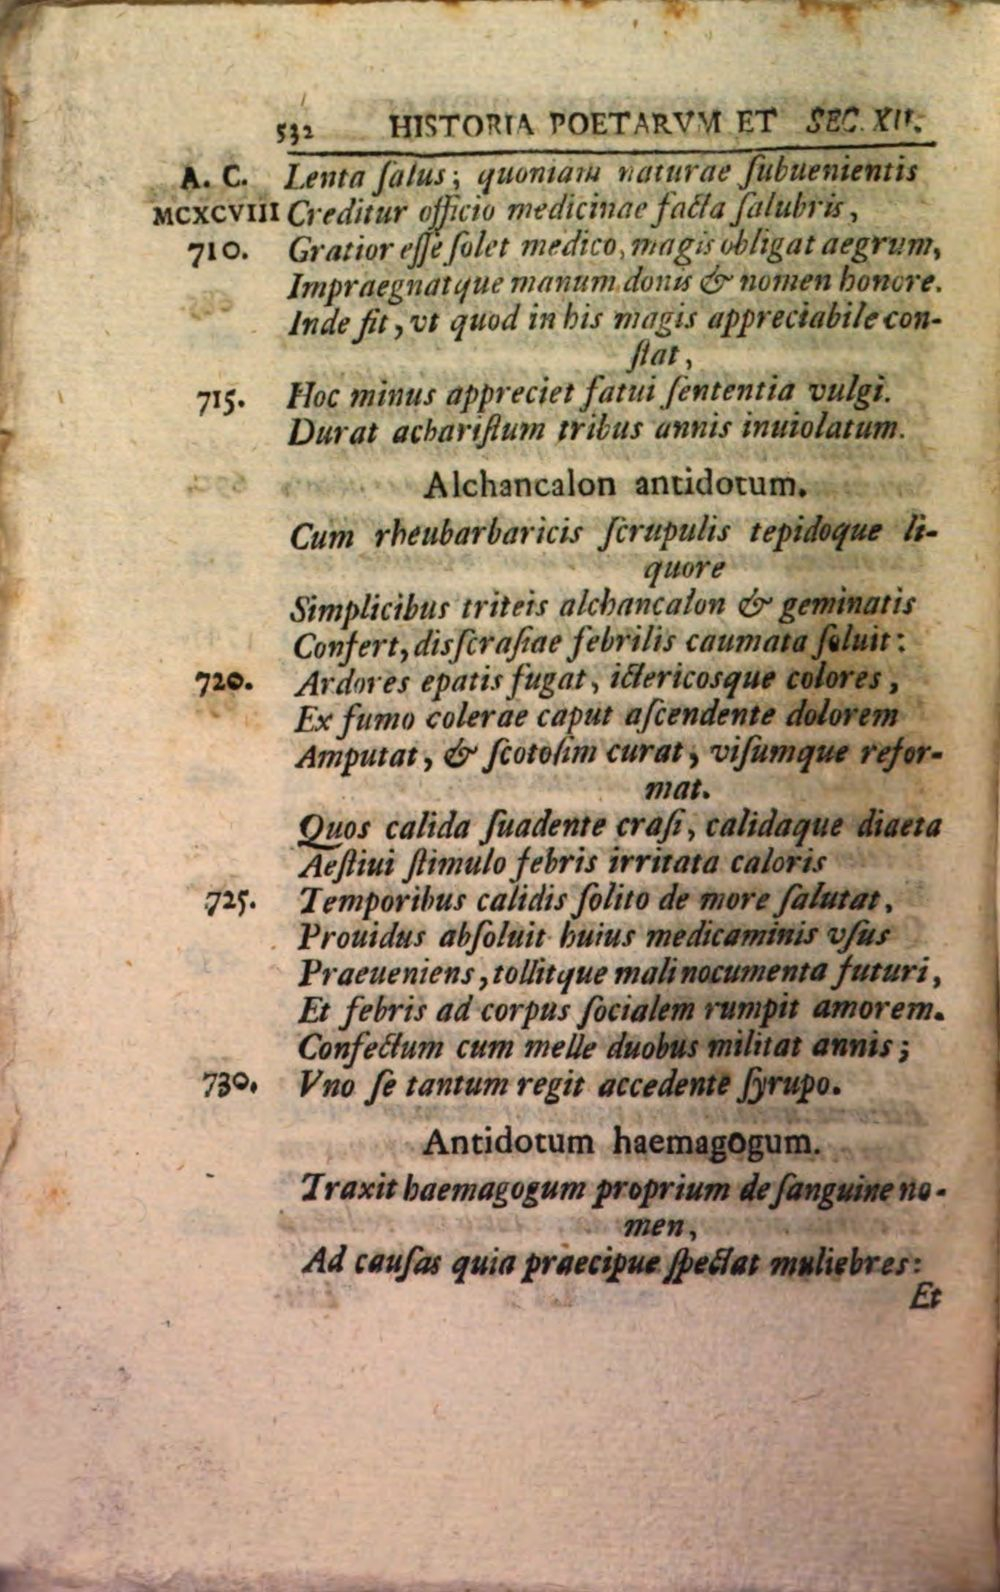 532 HISTORIA POETARVM ET SEC. XII.
A. C. Lenta ſalus; quoniam naturae ſubuenientis
MCXCVIII Creditur officio medicinae facta ſalubris,
710. Gratior eſſe ſolet medico, magis obligat aegrum,
Impraegnatque manum donis & nomen honore.
Inde fit, vt quod in his magis appreciabile con-
ſtat,
715. Hoc minus appreciet fatui ſententia vulgi.
Durat achariſtum tribus annis inuiolatum.
Alchancalon antidotum.
Cum rheubarbaricis ſcrupulis tepidoque li-
quore
Simplicibus triteis alchancalon & geminatis
Confert, disſcraſiae febrilis caumata ſoluit:
720. Ardores epatis fugat, ictericosque colores,
Ex fumo colerae caput aſcendente dolorem
Amputat, & ſcotoſim curat, viſumque refor-
mat.
Quos calida ſuadente craſi, calidaque diaeta
Aeſtiui ſtimulo febris irritata caloris
725. Temporibus calidis ſolito de more ſalutat,
Prouidus abſoluit huius medicaminis vſus
Praeueniens, tollitque mali nocumenta futuri,
Et febris ad corpus ſocialem rumpit amorem.
Confectum cum melle duobus militat annis;
730. Vno ſe tantum regit accedente ſyrupo.
Antidotum haemagogum.
Traxit haemagogum proprium de ſanguine no-
men,
Ad cauſas quia praecipue ſpectat muliebres:
Et